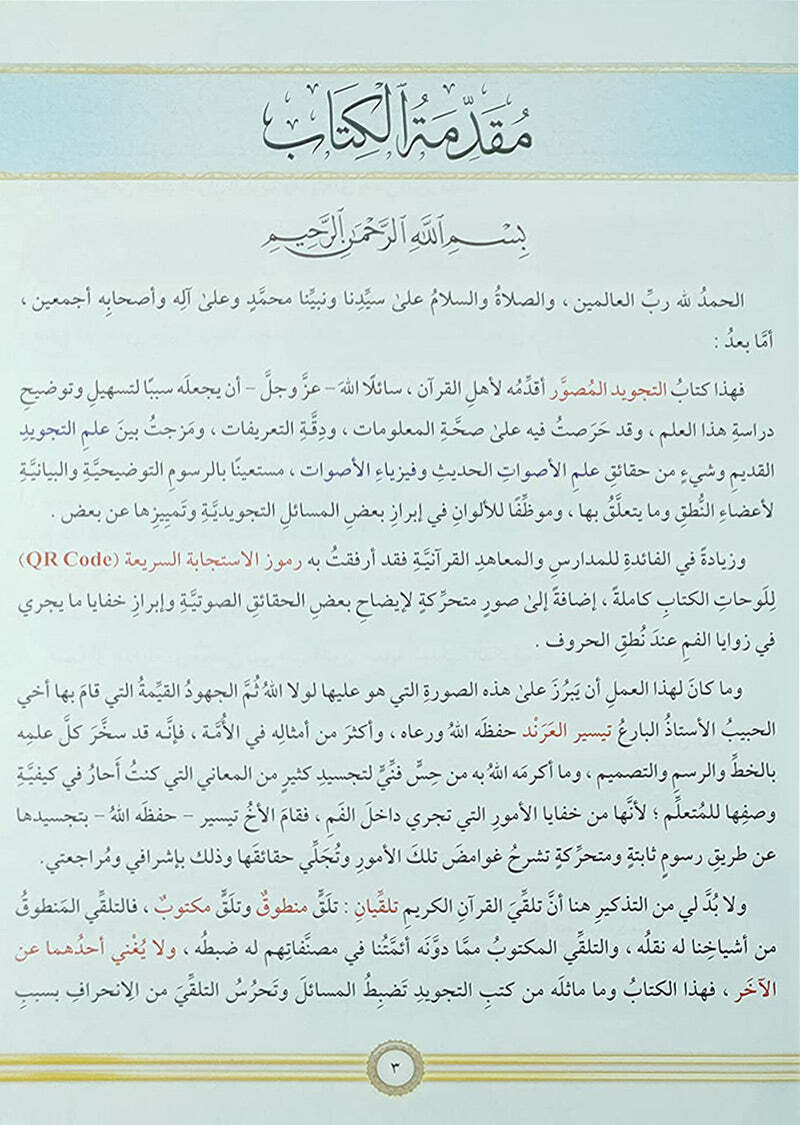 مُقَدِّمَةُ ٱلْكِتَابِ
بِسْمِ ٱللَّهِ ٱلرَّحْمَٰنِ ٱلرَّحِيمِ
الحمدُ لله ربِّ العالمين ، والصلاةُ والسلامُ علىٰ سيِّدِنا ونبيِّنا محمَّدٍ وعلىٰ آلِه وأصحابِه أجمعين ،
أمَّا بعدُ :
فهذا كتابُ التجويد المُصوَّر أقدِّمُه لأهلِ القرآن ، سائلًا اللهَ – عزَّ وجلَّ – أن يجعلَه سببًا لتسهيلِ وتوضيحِ
دراسةِ هذا العلم ، وقد حَرَصتُ فيه علىٰ صحَّةِ المعلومات ، ودِقَّةِ التعريفات ، ومَزجتُ بينَ علمِ التجويدِ
القديمِ وشيءٍ من حقائقِ علمِ الأصواتِ الحديثِ وفيزياءِ الأصوات ، مستعينًا بالرسومِ التوضيحيَّةِ والبيانيَّةِ
لأعضاءِ النُّطقِ وما يتعلَّقُ بها ، وموظِّفًا للألوانِ في إبرازِ بعضِ المسائلِ التجويديَّةِ وتَمييزِها عن بعض .
وزيادةً في الفائدةِ للمدارسِ والمعاهدِ القرآنيَّةِ فقد أرفقتُ به رموز الاستجابة السريعة (QR Code)
لِلَوحاتِ الكتابِ كاملةً ، إضافةً إلىٰ صورٍ متحرِّكةٍ لإيضاحِ بعضِ الحقائقِ الصوتيَّةِ وإبرازِ خفايا ما يجري
في زوايا الفمِ عندَ نُطقِ الحروف .
وما كانَ لهذا العملِ أن يَبرُزَ علىٰ هذه الصورةِ التي هو عليها لولا اللهُ ثُمَّ الجهودُ القيِّمةُ التي قامَ بها أخي
الحبيبُ الأستاذُ البارعُ تيسير العَرَنْد حفظَه اللهُ ورعاه ، وأكثرَ من أمثالِه في الأُمَّة ، فإنَّه قد سخَّرَ كلَّ علمِه
بالخطِّ والرسمِ والتصميم ، وما أكرمَه اللهُ به من حِسٍّ فنِّيٍّ لتجسيدِ كثيرٍ من المعاني التي كنتُ أَحارُ في كيفيَّةِ
وصفِها للمُتعلِّم ؛ لأنَّها من خفايا الأمورِ التي تجري داخلَ الفَمِ ، فقامَ الأخُ تيسير – حفظَه اللهُ – بتجسيدها
عن طريقِ رسومٍ ثابتةٍ ومتحرِّكةٍ تشرحُ غوامضَ تلكَ الأمورِ وتُجلِّي حقائقَها وذلك بإشرافي ومُراجعتي.
ولا بُدَّ لي من التذكيرِ هنا أنَّ تلقِّيَ القرآنِ الكريمِ تلقِّيانِ : تلقٍّ منطوقٌ وتلقٍّ مكتوبٌ ، فالتلقِّي المَنطوقُ
من أشياخِنا له نقلُه ، والتلقِّي المكتوبُ ممَّا دوَّنَه أئمَّتُنا في مصنَّفاتِهم له ضبطُه ، ولا يُغْني أحدُهما عن
الآخَر ، فهذا الكتابُ وما ماثلَه من كتبِ التجويدِ تَضبِطُ المسائلَ وتَحرُسُ التلقِّيَ من الِانحرافِ بسببِ
٣